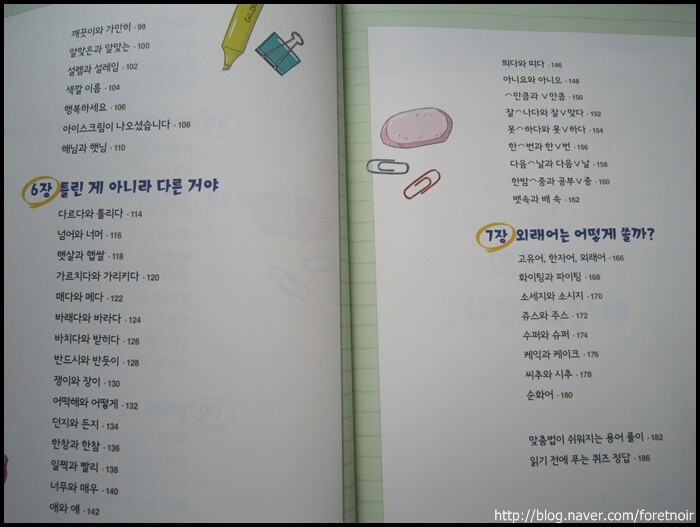 깨끗이와 가만히 · 98
알맞은과 알맞는 · 100
설렘과 설레임 · 102
색깔 이름 · 104
행복하세요 · 106
아이스크림이 나오셨습니다 · 108
해님과 햇님 · 110
6장 틀린 게 아니라 다른 거야
다르다와 틀리다 · 114
넘어와 너머 · 116
햇살과 햅쌀 · 118
가르치다와 가리키다 · 120
매다와 메다 · 122
바래다와 바라다 · 124
바치다와 받히다 · 126
반드시와 반듯이 · 128
쟁이와 장이 · 130
어떡해와 어떻게 · 132
던지와 든지 · 134
한창과 한참 · 136
일찍과 빨리 · 138
너무와 매우 · 140
애와 얘 · 142
띄다와 띠다 · 146
아니요와 아니오 · 148
⌒만큼과 ∨만큼 · 150
잘⌒나다와 잘∨맞다 · 152
못⌒하다와 못∨하다 · 154
한⌒번과 한∨번 · 156
다음⌒날과 다음∨날 · 158
한밤⌒중과 공부∨중 · 160
뱃속과 배 속 · 162
7장 외래어는 어떻게 쓸까?
고유어, 한자어, 외래어 · 166
화이팅과 파이팅 · 168
소세지와 소시지 · 170
쥬스와 주스 · 172
수퍼와 슈퍼 · 174
케익과 케이크 · 176
씨추와 시추 · 178
순화어 · 180
맞춤법이 쉬워지는 용어 풀이 · 182
읽기 전에 푸는 퀴즈 정답 · 186
http://blog.naver.com/foretnoir